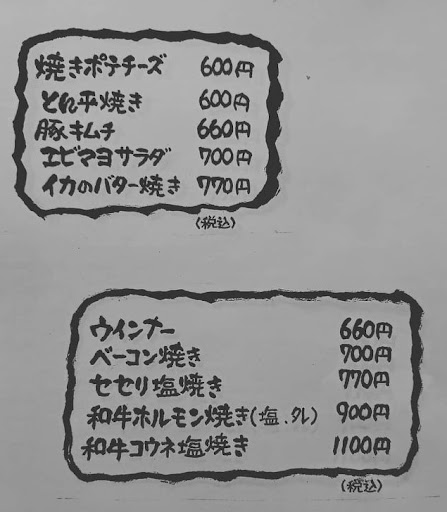 焼きポテチーズ 600円
とん平焼き 600円
豚キムチ 660円
エビマヨサラダ 700円
イカのバター焼き 770円
(税込)
ウインナー 660円
ベーコン焼き 700円
セセリ塩焼き 770円
和牛ホルモン焼き(塩.タレ) 900円
和牛コウネ塩焼き 1100円
(税込)